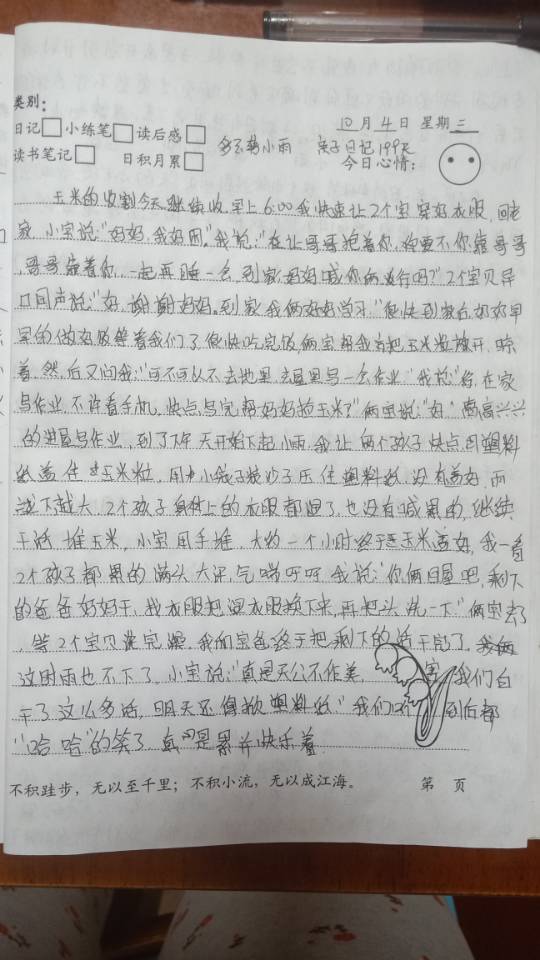 类别：
日记 小练笔 读后感
10月4日 星期三
读书笔记 日积月累 多云转小雨 亲子日记199天
今日心情：
玉米的收割今天继续收,早上6:00我快速让2个宝穿好衣服,回老
家,小宝说:"妈妈,我好困。"我说:"在让哥哥抱着你,你要不你靠哥哥
,哥哥靠着你,一起再睡一会,到家妈妈喊你俩,行吗?"2个宝贝异
口同声说:"好,谢谢妈妈,到家我俩好好学习."很快到家后奶奶早
早的做好饭等着我们了,很快吃完饭,俩宝帮我们把玉米粒摊开,晾
着,然后又问我:"可不可以不去地里,去屋里写一会作业."我说:"行,在家
写作业,不许看手机,快点写完帮妈妈捡玉米."俩宝说:"好."高高兴兴
的进屋写作业,到了下午天开始下起小雨,我让两个孩子快点用塑料
纸盖住玉米粒,用小袋子装沙子压住塑料纸,没有盖好,雨
越下越大,2个孩子身上的衣服都湿了,也没有喊累的,继续
干活堆玉米,小宝用手堆,大约一个小时终于玉米盖好,我一看
2个孩子都累的满头大汗,气喘吁吁,我说:"你俩回屋吧,剩下
的爸爸妈妈干,找衣服把湿衣服换下来,再把头洗一下"俩宝去了
,等2个宝贝洗完澡,我和宝爸终于把剩下的活干完了,
这时雨也不下了,小宝说:"真是天公不作美, 我们白
干了这么多活,明天还得掀塑料纸"我们 到后都
"哈哈"的笑了,真的是累并快乐着
不积跬步，无以至千里；不积小流，无以成江海。 第 页